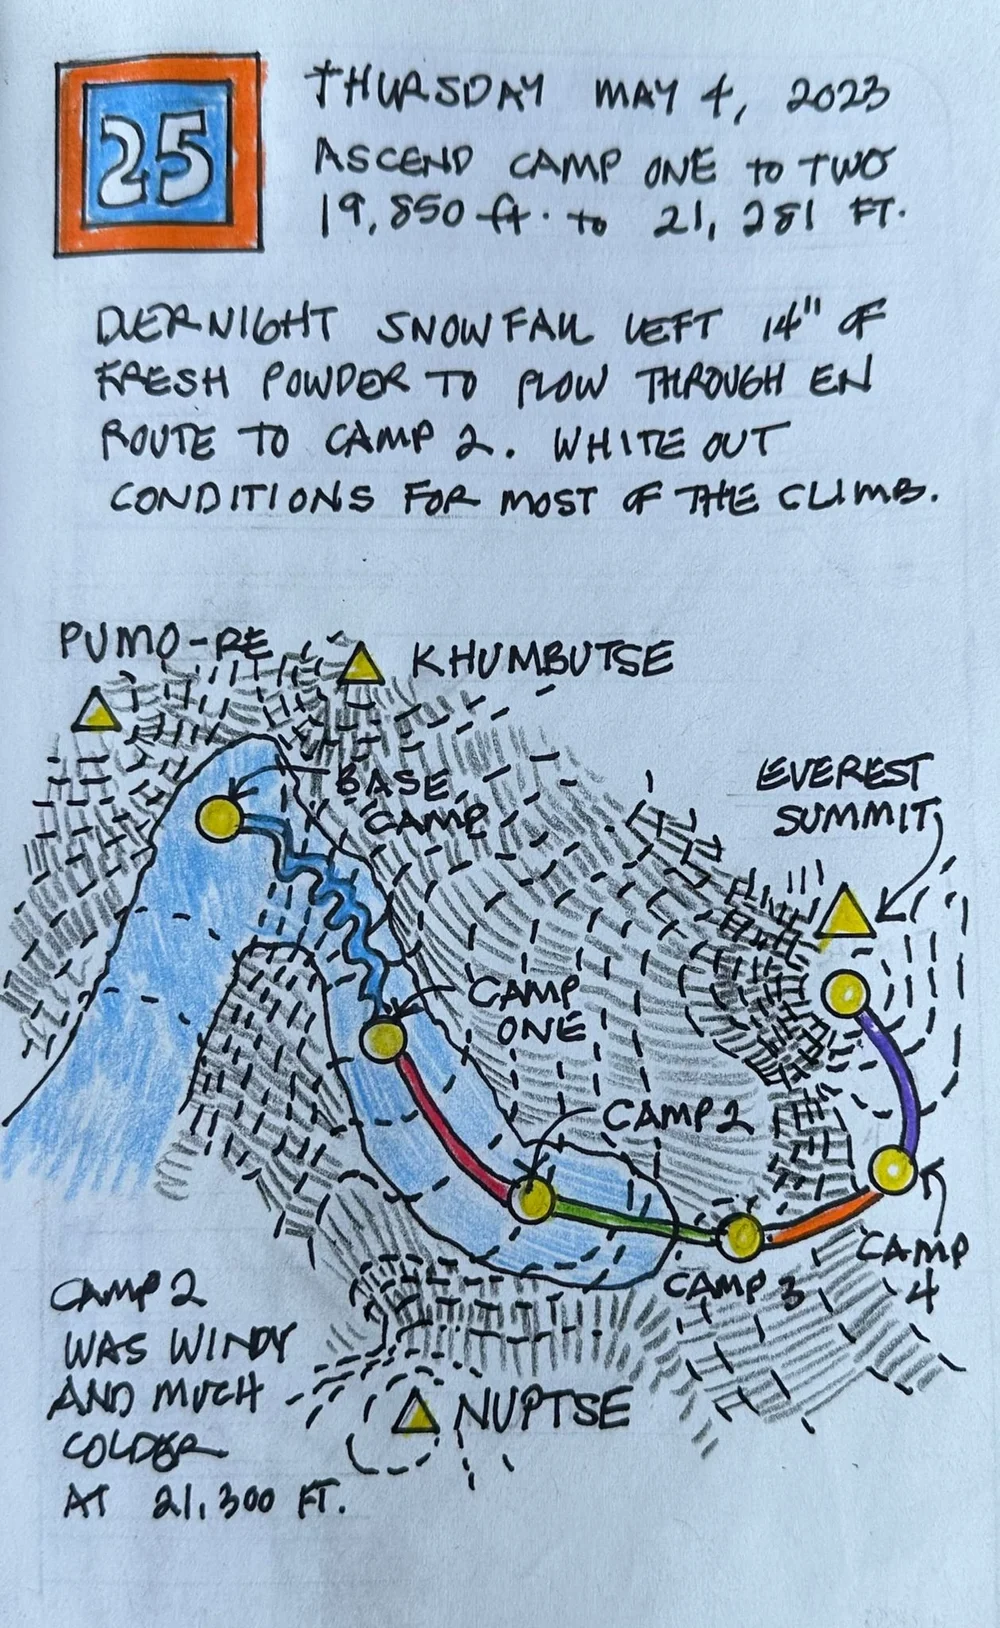 25
THURSDAY MAY 4, 2023
ASCEND CAMP ONE to TWO
19,850 ft. to 21,281 FT.
OVERNIGHT SNOWFALL LEFT 14" OF
FRESH POWDER TO PLOW THROUGH EN
ROUTE TO CAMP 2. WHITE OUT
CONDITIONS FOR MOST OF THE CLIMB.
PUMO-RE
KHUMBUTSE
BASE
CAMP
EVEREST
SUMMIT
CAMP
ONE
CAMP 2
CAMP 3
CAMP
4
CAMP 2
WAS WINDY
AND MUCH
COLDER
AT 21,300 FT.
NUPTSE